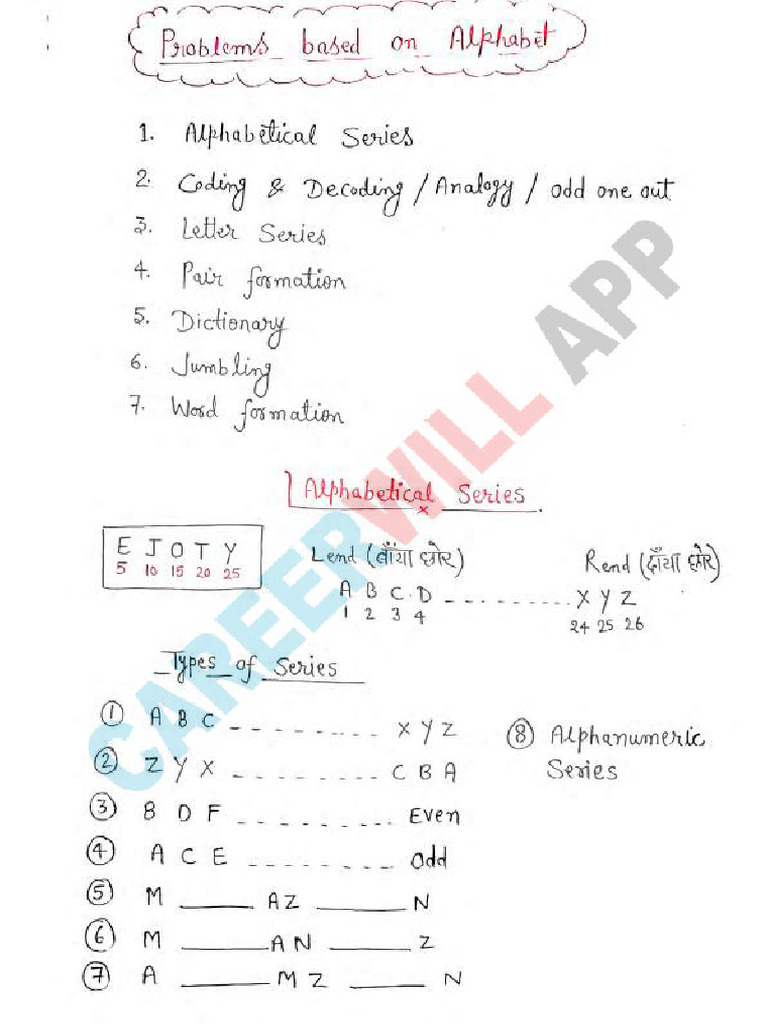 Problems based on Alphabet
1. Alphabetical Series
2. Coding & Decoding / Analogy / odd one out
3. Letter Series
4. Pair formation
5. Dictionary
6. Jumbling
7. Word formation
Alphabetical Series
E J O T Y
5 10 15 20 25
Lend (बाँया छोर)
Rend (दाँया छोर)
A B C D - - - - - - - - - X Y Z
1 2 3 4 24 25 26
Types of Series
① A B C - - - - - - - - - X Y Z
② Z Y X - - - - - - - - - C B A
③ B D F - - - - - - - - - Even
④ A C E - - - - - - - - - odd
⑤ M ______ A Z ______ N
⑥ M ______ A N ______ Z
⑦ A ______ M Z ______ N
⑧ Alphanumeric
Series
CAREERWILL APP